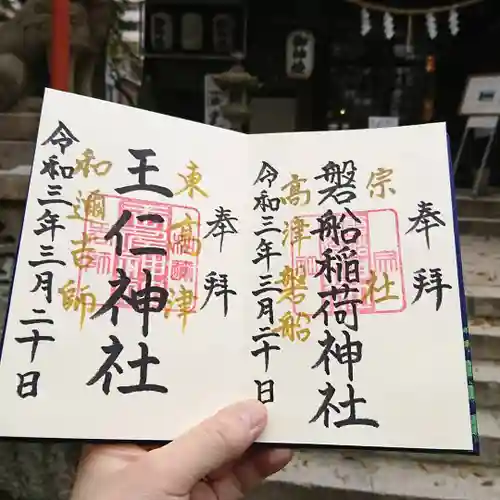 奉拝
宗社
磐船稲荷神社
高津磐船
令和三年三月二十日
奉拝
東高津
王仁神社
和邇吉師
令和三年三月二十日
御神燈